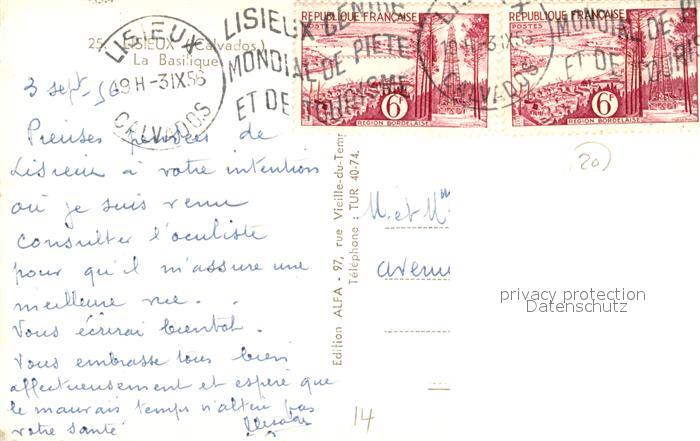 25. LISIEUX (Calvados)
La Basilique
LISIEUX
19H-3 IX 56
CALVADOS
LISIEUX CENTRE
MONDIAL DE PIETE
ET DE TOURISME
REPUBLIQUE FRANÇAISE
POSTES
6F
REGION BORDELAISE
REPUBLIQUE FRANÇAISE
6F
REGION BORDELAISE
19H-3 IX 56
CALVADOS
MONDIAL DE PI
ET DE TOURIS
3 sept - 56
Pieuses pensées de
Lisieux à votre intention
où je suis venu
consulter l'oculiste
pour qu'il m'assure une
meilleure vue.
Vous écrirai bientôt.
Vous embrasse tous bien
affectueusement et espère que
le mauvais temps n'altère pas
votre santé
Edition ALFA - 97, rue Vieille-du-Temp
Téléphone : TUR 40-74.
20
M. et Mm
avenu
privacy protection
Datenschutz
14